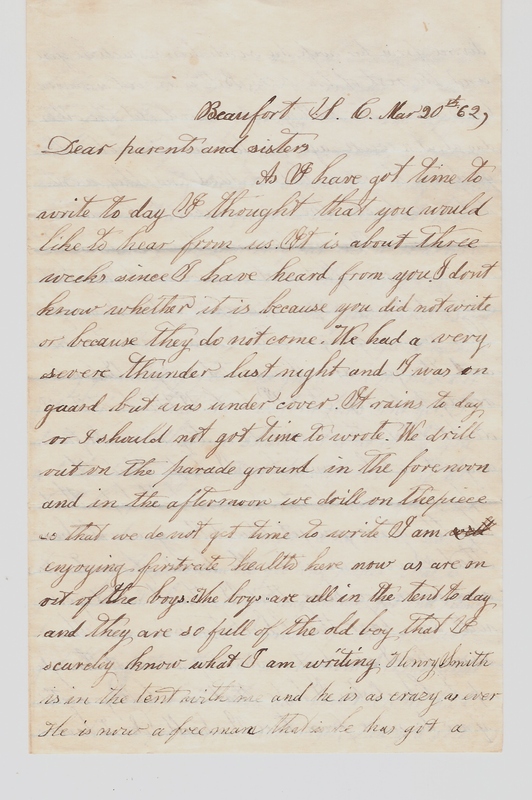 Beaufort S. C. Mar 20th 62,
Dear parents and sisters
As I have got time to
write to day I thought that you would
like to hear from us. It is about three
weeks since I have heard from you. I dont
know whether it is because you did not write
or because they do not come. We had a very
severe thunder last night and I was on
guard but was under cover. It rains to day
or I should not got time to wrote. We drill
out on the parade ground in the forenoon
and in the afternoon we drill on the piece
so that we do not get time to write I am
enjoying firstrate health here now as are on
oit of the boys. The boys are all in the tent to day
and they are so full of the old boy that I
scarcley know what I am writing, Henry Smith
is in the tent with me and he is as crazy as ever
He is now a free man that is he has got a